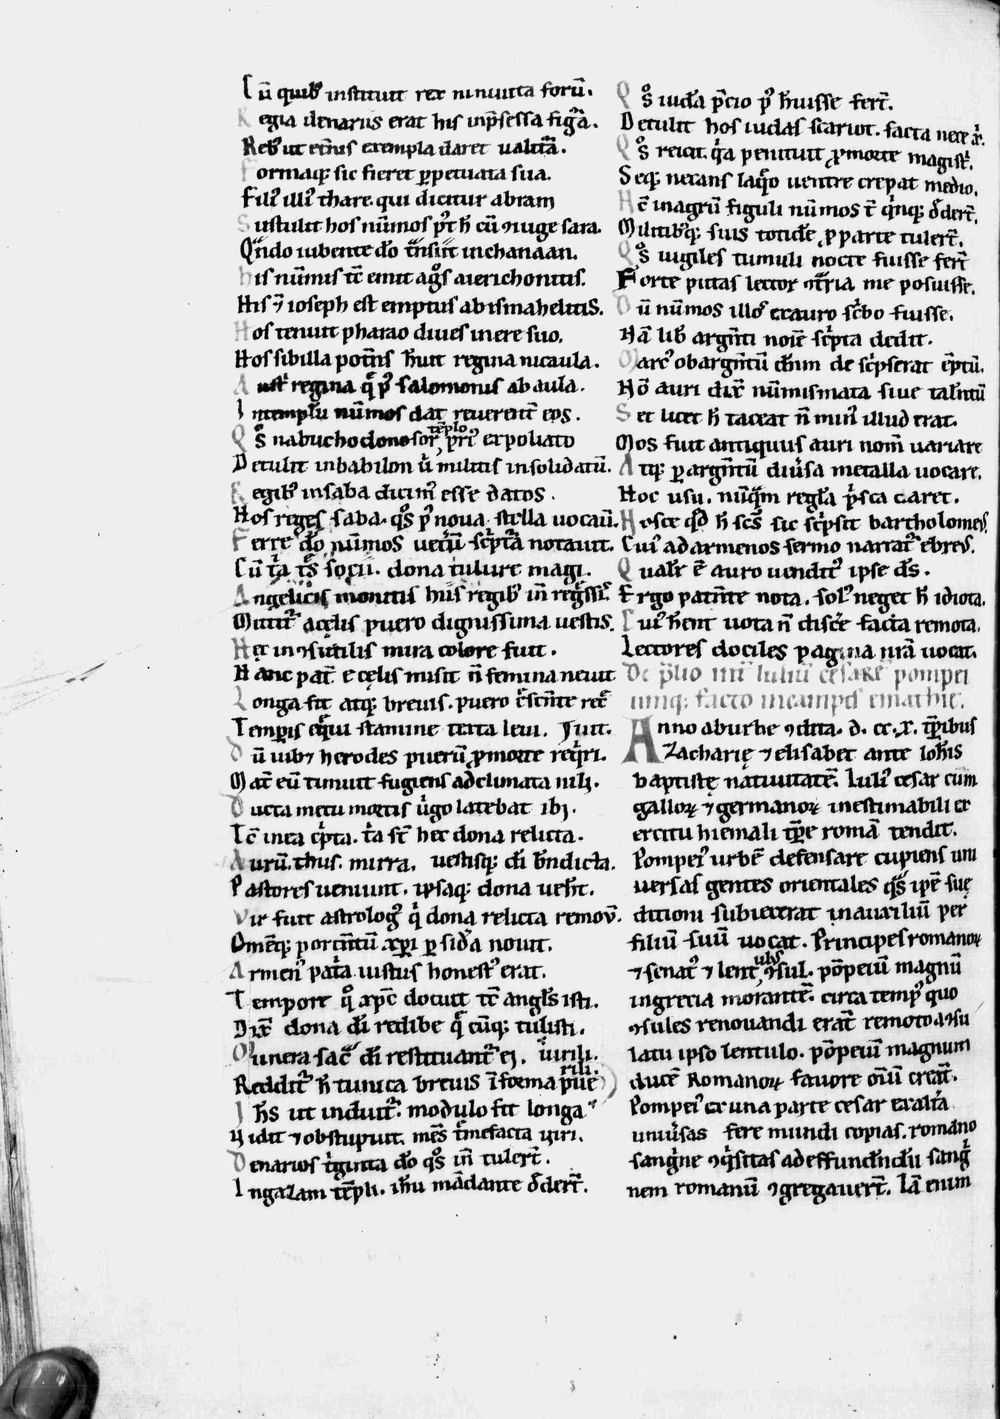 Cū quib᷒ instituit rex niniuita forū.
Regia denariis erat his inp̄sessa figᷓa.
Reb᷒ ut et̄nis exempla daret ualitᷓa.
Formaq; sic fieret ꝑpetuata sua.
Fili᷒ illi᷒ thare. qui dicitur abram
Sustulit hos nūmos p̄t h̄ cū ꝯiuge sara.
Qᷓndo iubente dō tᷓnsiit in chanaan.
His nūmis tc̄ emit agᷤos a ierichontis.
His ⁊ ioseph est emptus ab ismahelitis.
Hos tenuit pharao diues in ere suo.
Hos sibilla potn̄s h̄uit regina nicaula.
Austͥ regina q̄ p᷒ salomonis ab aula.
In templū nūmos dat reuerent̄ eos.
Qͦs nabuchodonosor, templo p̄ri᷒ expoliato
Detulit in babilon ū militis in solidatū.
Regib᷒ in saba dicim᷒ esse datos.
Hos reges saba. qͦs p᷒ noua stella uocaū.
Ferre dō nūmos ueterū sc̄ptᷓa notauit.
Cū tͥa tᷤ socii. dona tulere magi.
Angelicis monitis his regib᷒ in regᷤs᷒.
Mittit᷒ a celis puero dignissima uestis.
Hec inꝯsutilis mira colore fuit.
Hanc pat̄ e celis misit n̄ femina neuit
Longa fit atq; breuis. puero c̄scente rec̄
Temꝑis eqͥui stamine texta leui. Fuit.
Dū uib᷒ herodes puerū ꝓ morte reqͥri.
Mat̄ eū timuit fugiens ad climata nili.
Ducta metu mortis uͥgo latebat ibi.
Tc̄ in ea cͥpta. tͥa st̄ hec dona relicta.
Aurū. thus. mirra. uestisq; dī b̄ndicta.
Pastores ueniunt. ipsaq; dona ueh̄t.
Vir fuit astrologᷤ qͥ dona relicta remoū.
Omēq; portn̄tū xp̄i ꝑ sidᷓa nouit.
Armeni᷒ patͥa iustus honest᷒ erat.
Tempore qͦ xp̄c docuit tc̄ angl̄s isti.
Dix̄ dona dī redibe qͥ cūq; tulisti.
Munera sac̄ dī restituant᷒ ei. uirili.
Reddit᷒ h̄ tunica breuis ī foema pue͛rili.
Ih̄s ut induit᷒. modulo fit longa
Vidit ⁊ obstupuit. mēs tͥmefacta uiri.
Denarios tͥginta dō qͦs in̄ tulert̄.
In gazam tēpli. ih̄u mādante dͤdert̄.
Qͦs iudᷓa p̄cio p᷒ h̄uisse fert̄.
Detulit hos iudas scariot. facta nece xͥ.
Qͦs reicit. qͥa penituit ꝓ morte magistͥ.
Seq; necans laqͦo uentre crepat medio.
Hc̄ in agrū figuli nūmos t̄ qͥnq; dͤdert̄.
Militib᷒q; suis totidē ꝓ parte tulert̄.
Qͦs uigiles tumuli nocte fuisse fert̄
Forte putas lector ꝯtͣria me posuisse.
Dū nūmos illos᷒ ex auro scͥbo fuisse.
Nā lib᷒ argn̄ti noīe scͥpta dedit.
Marc᷒ ob argn̄tū dn̄m de scͥpserat ēptū.
Hō auri dix̄ nūmismata siue taln̄tū
Set licet h̄ taceat n̄ min᷒ illud erat.
Mos fuit antiquis auri nom̄ uariare
Atq; ꝑ argn̄tū diūsa metalla uocare.
Hoc usu. nūqᷓm regl̄a pͥsca caret.
Hosce qͦd h̄ scᷤ sic scͥpsit bartholome᷒.
Cui᷒ ad armenos sermo narrat᷒ ebre᷒.
Qualr̄ ē auro uendit᷒ ipse dᷤ.
Ergo patn̄te nota. sol᷒ neget h̄ idiota.
Cui᷒ h̄ent uota n̄ disc̄e facta remota.
Lectores dociles pagina nrā uocat.
De p̄lio int᷒ iuliū cesarē pompei
umq; facto in campis emathie.
Anno ab urbe ꝯdita. d. cc. x. tp̄ribus
Zacharię ⁊ elisabet ante ioh̄is
baptistę natiuitatē. Iuli᷒ cesar cum
galloꝝ ⁊ germanoꝝ inestimabili ex
ercitu hiemali tp̄re romā tendit.
Pompei᷒ urbē defensare cupiens uni
uersas gentes orientales qᷤs ipse suę
ditioni subiecerat in auxiliū per
filiū suū uocat. Principes romanoꝝ
⁊ senat᷒ ⁊ lentul᷒, ꝯsul. pōpeiū magnū
in grecia morantē. circa temp᷒ quo
ꝯsules renouandi erāt remoto a ꝯsu
latu ipso lentulo. pōpeiū magnum
ducē Romanoꝝ fauore oīū creāt.
Pompei᷒ ex una parte cesar ex altͣa
uniūsas fere mundi copias. romano
sangᷓne ꝯqͥsitas ad effundn̄dū sangͥ
nem romanū ꝯgregauert̄. Iā enim